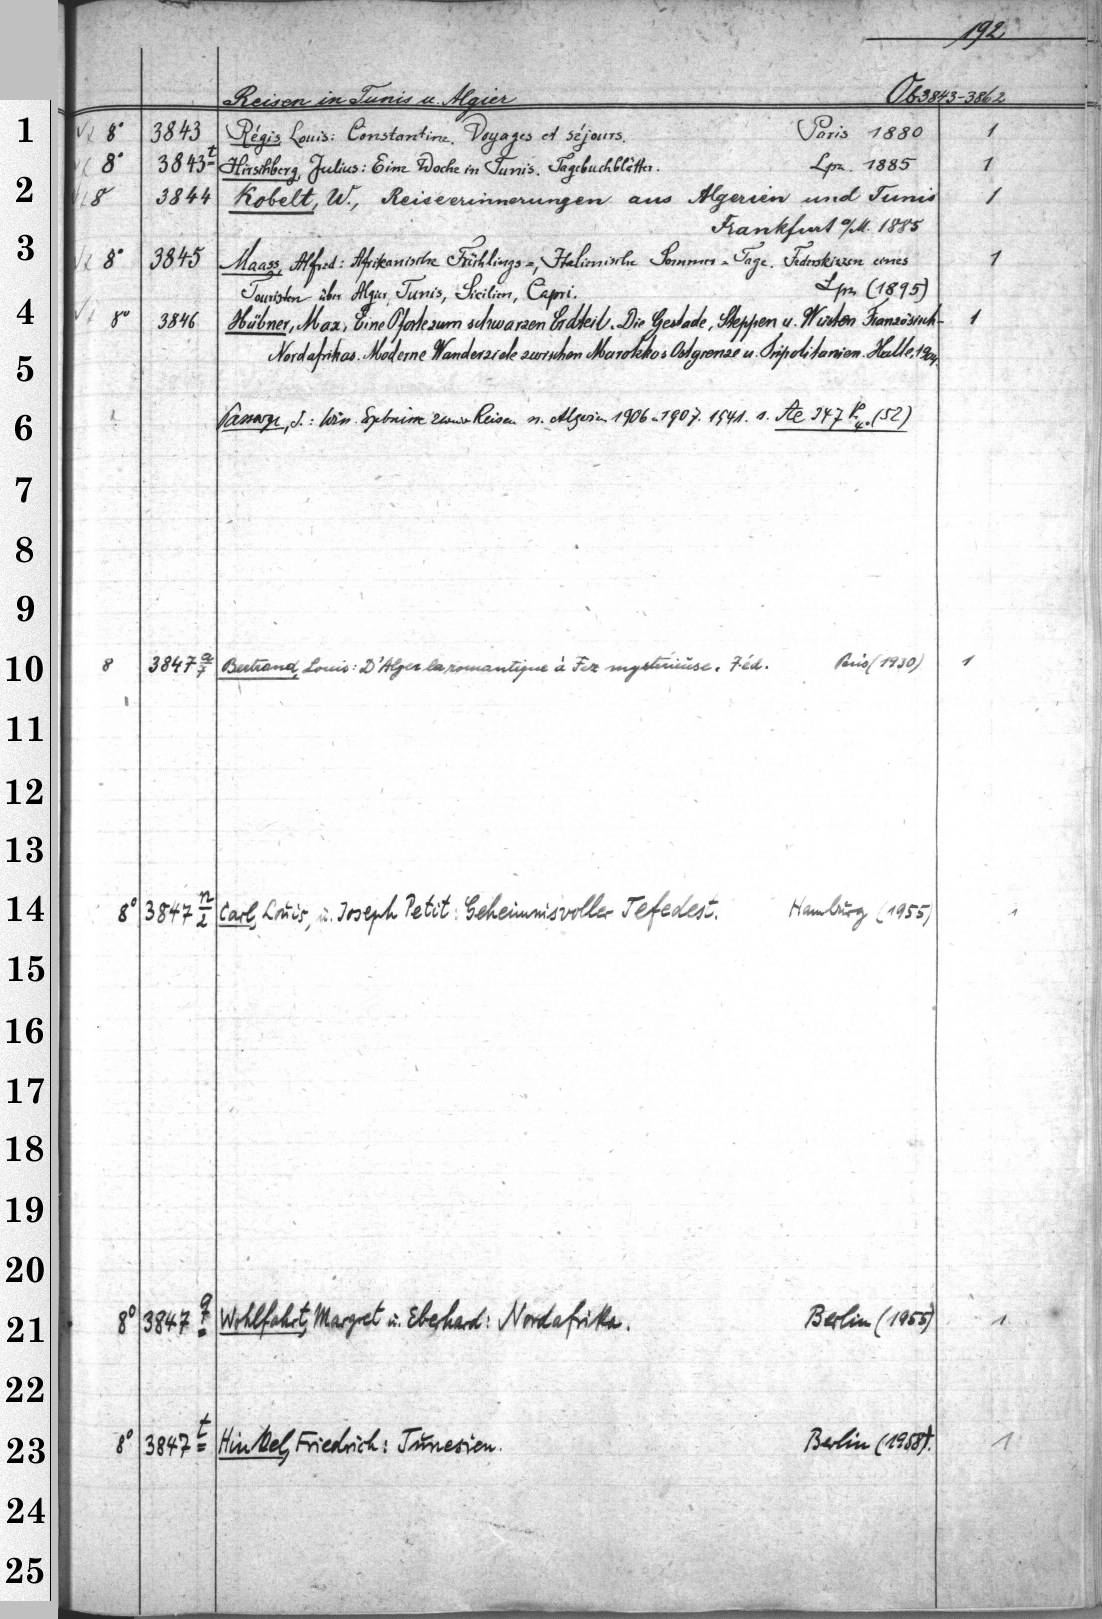 192
Reisen in Tunis u. Algier Ob 3843-3862
1 8° 3843 Régis, Louis: Constantine. Voyages et séjours. Paris 1880 1
8° 3843 t Hirschberg, Julius: Eine Woche in Tunis. Tagebuchblätter. Lpz. 1885 1
2 8° 3844 Kobelt, W., Reiseerinnerungen aus Algerien und Tunis 1
Frankfurt a/M. 1885
3 8° 3845 Maass, Alfred: Afrikanische Frühlings-, Italienische Sommer-Tage. Federskizzen eines 1
Touristen über Algier, Tunis, Sicilien, Capri. Lpz. (1895)
4 8° 3846 Hübner, Max, Eine Pforte zum schwarzen Erdteil. Die Gestade, Steppen u. Wüsten Französisch- 1
5 Nordafrikas. Moderne Wanderziele zwischen Marokkos Ostgrenze u. Tripolitanien. Halle, 1904.
6 J.: Wiss. Ergebnisse zweier Reisen n. Algerien 1906 u. 1907. 1941. s. Ae 347 (52)
7
8
9
10 8 3847 a/7 Bertrand, Louis: D'Alger la romantique à Fez mystérieuse. 7 éd. Paris (1930) 1
11
12
13
14 8° 3847 n/2 Carl, Louis, u. Joseph Petit: Geheimnisvoller Tefedest. Hamburg (1955) 1
15
16
17
18
19
20
21 8° 3847 q Wohlfahrt, Margret u. Eberhard: Nordafrika. Berlin (1955) 1
22
23 8° 3847 t Hinkel, Friedrich: Tunesien. Berlin (1958). 1
24
25